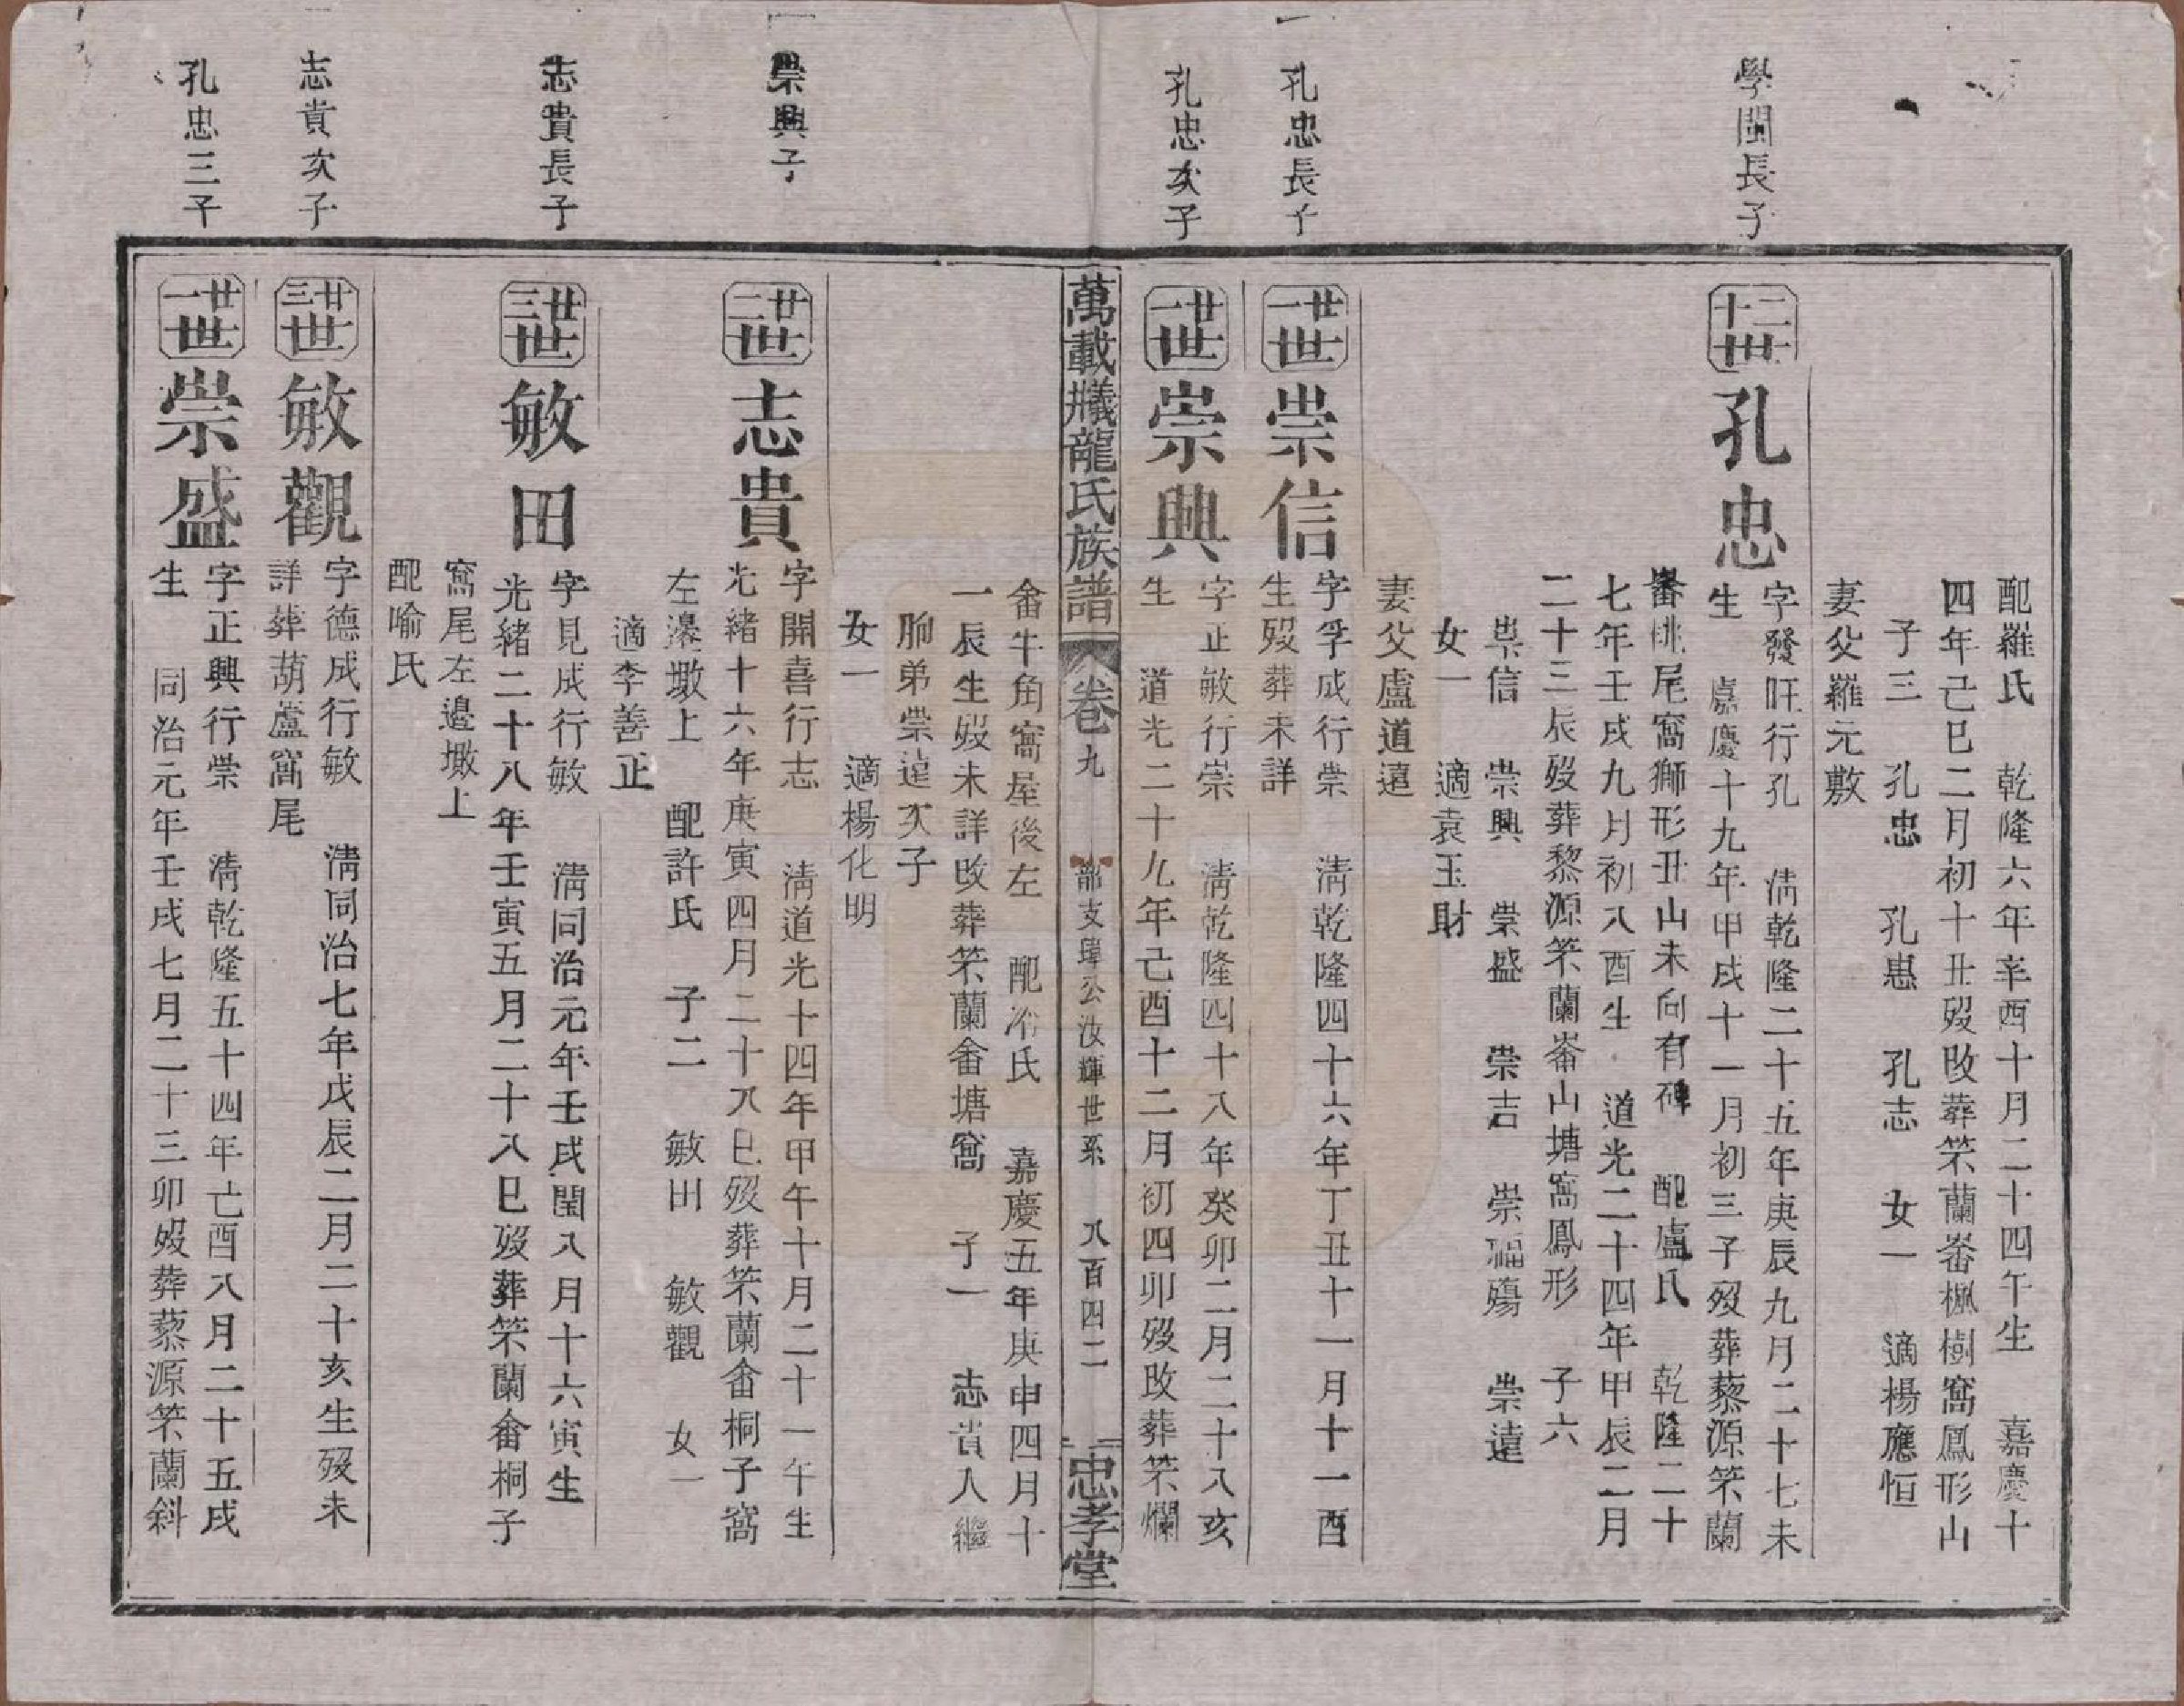 配羅氏　乾隆六年辛酉十月二十四午生　嘉慶十
四年己巳二月初十丑歿改葬笨蘭崙楓樹窩鳳形山
子三　孔忠　孔惠　孔志　女一　適楊應恒
妻父羅元敷
學閩長子
二十世
孔忠
字發旺行孔　清乾隆二十五年庚辰九月二十七未
生　嘉慶十九年甲戌十一月初三子歿葬藜源笨蘭
崙桃尾窩獅形丑山未向有碑　配盧氏　乾隆二十
七年壬戌九月初八酉生　道光二十四年甲辰二月
二十三辰歿葬黎源笨蘭崙山塘窩鳳形　子六
崇信　崇興　崇盛　崇吉　崇福殤　崇遠
女一　適袁玉財
妻父盧道遠
孔忠長子
廿一世
崇信
字孚成行崇　清乾隆四十六年丁丑十一月十一酉
生歿葬未詳
孔忠次子
廿一世
崇興
字正敏行崇　清乾隆四十八年癸卯二月二十八亥
生　道光二十九年己酉十二月初四卯歿改葬笨爛
萬載㸻龍氏族譜　卷九　部支瑋公汝輝世系　八百四二　忠孝堂
畬牛角窩屋後左　配冷氏　嘉慶五年庚申四月十
一辰生歿未詳改葬笨蘭畬塘窩　子一　志貴入繼
胞弟崇遠次子
女一　適楊化明
崇興子
廿二世
志貴
字開喜行志　清道光十四年甲午十月二十一午生
光緒十六年庚寅四月二十八巳歿葬笨蘭畬桐子窩
左邊墩上　配許氏　子二　敏田　敏觀　女一
適李善正
志貴長子
廿三世
敏田
字見成行敏　清同治元年壬戌閏八月十六寅生
光緒二十八年壬寅五月二十八巳歿葬笨蘭畬桐子
窩尾左邊墩上
配喻氏
志貴次子
廿三世
敏觀
字德成行敏　清同治七年戊辰二月二十亥生歿未
詳葬葫蘆窩尾
孔忠三子
廿一世
崇盛
字正興行崇　清乾隆五十四年己酉八月二十五戌
生　同治元年壬戌七月二十三卯歿葬藜源笨蘭斜